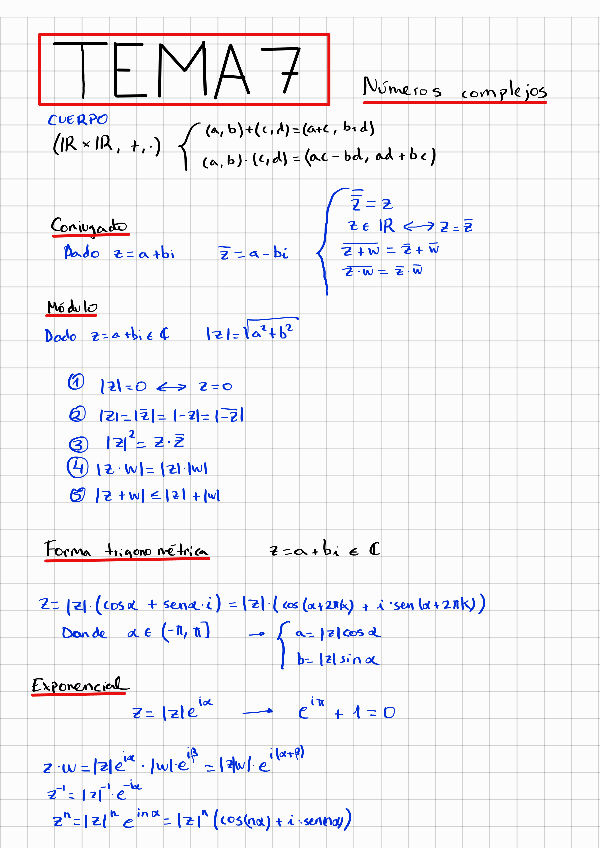 TEMA 7
Números complejos
CUERPO
(ℝ×ℝ, +, ·) { (a, b)+(c, d)=(a+c, b+d)
(a, b)·(c, d)=(ac-bd, ad+bc)
Conjugado
Dado z=a+bi z̅=a-bi
{ z̿=z
z∈ℝ ⟷ z=z̅
\overline{z+w}=z̅+w̅
\overline{z·w}=z̅·w̅
Módulo
Dado z=a+bi∈ℂ |z|=√(a²+b²)
① |z|=0 ⟷ z=0
② |z|=|z̅|=|-z|=|\overline{-z}|
③ |z|²=z·z̅
④ |z·w|=|z|·|w|
⑤ |z+w|≤|z|+|w|
Forma trigonométrica z=a+bi∈ℂ
z=|z|·(cosα + senα·i)=|z|·(cos(α+2πk) + i·sen(α+2πk))
Donde α∈(-π, π] → { a=|z|cosα
b=|z|sinα
Exponencial
z=|z|e^{iα} → e^{iπ} + 1=0
z·w=|z|e^{iα}·|w|·e^{iβ}=|z|w|·e^{i(α+β)}
z^{-1}=|z|^{-1}·e^{-iα}
z^n=|z|^n e^{inα}=|z|^n(cos(nα)+i·sennα))